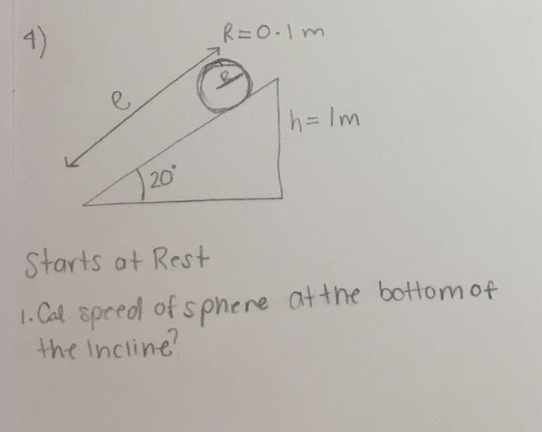 4)
R=0.1m
l
R
h=1m
20°
Starts at Rest
1. Cal. speed of sphere at the bottom of
the Incline?